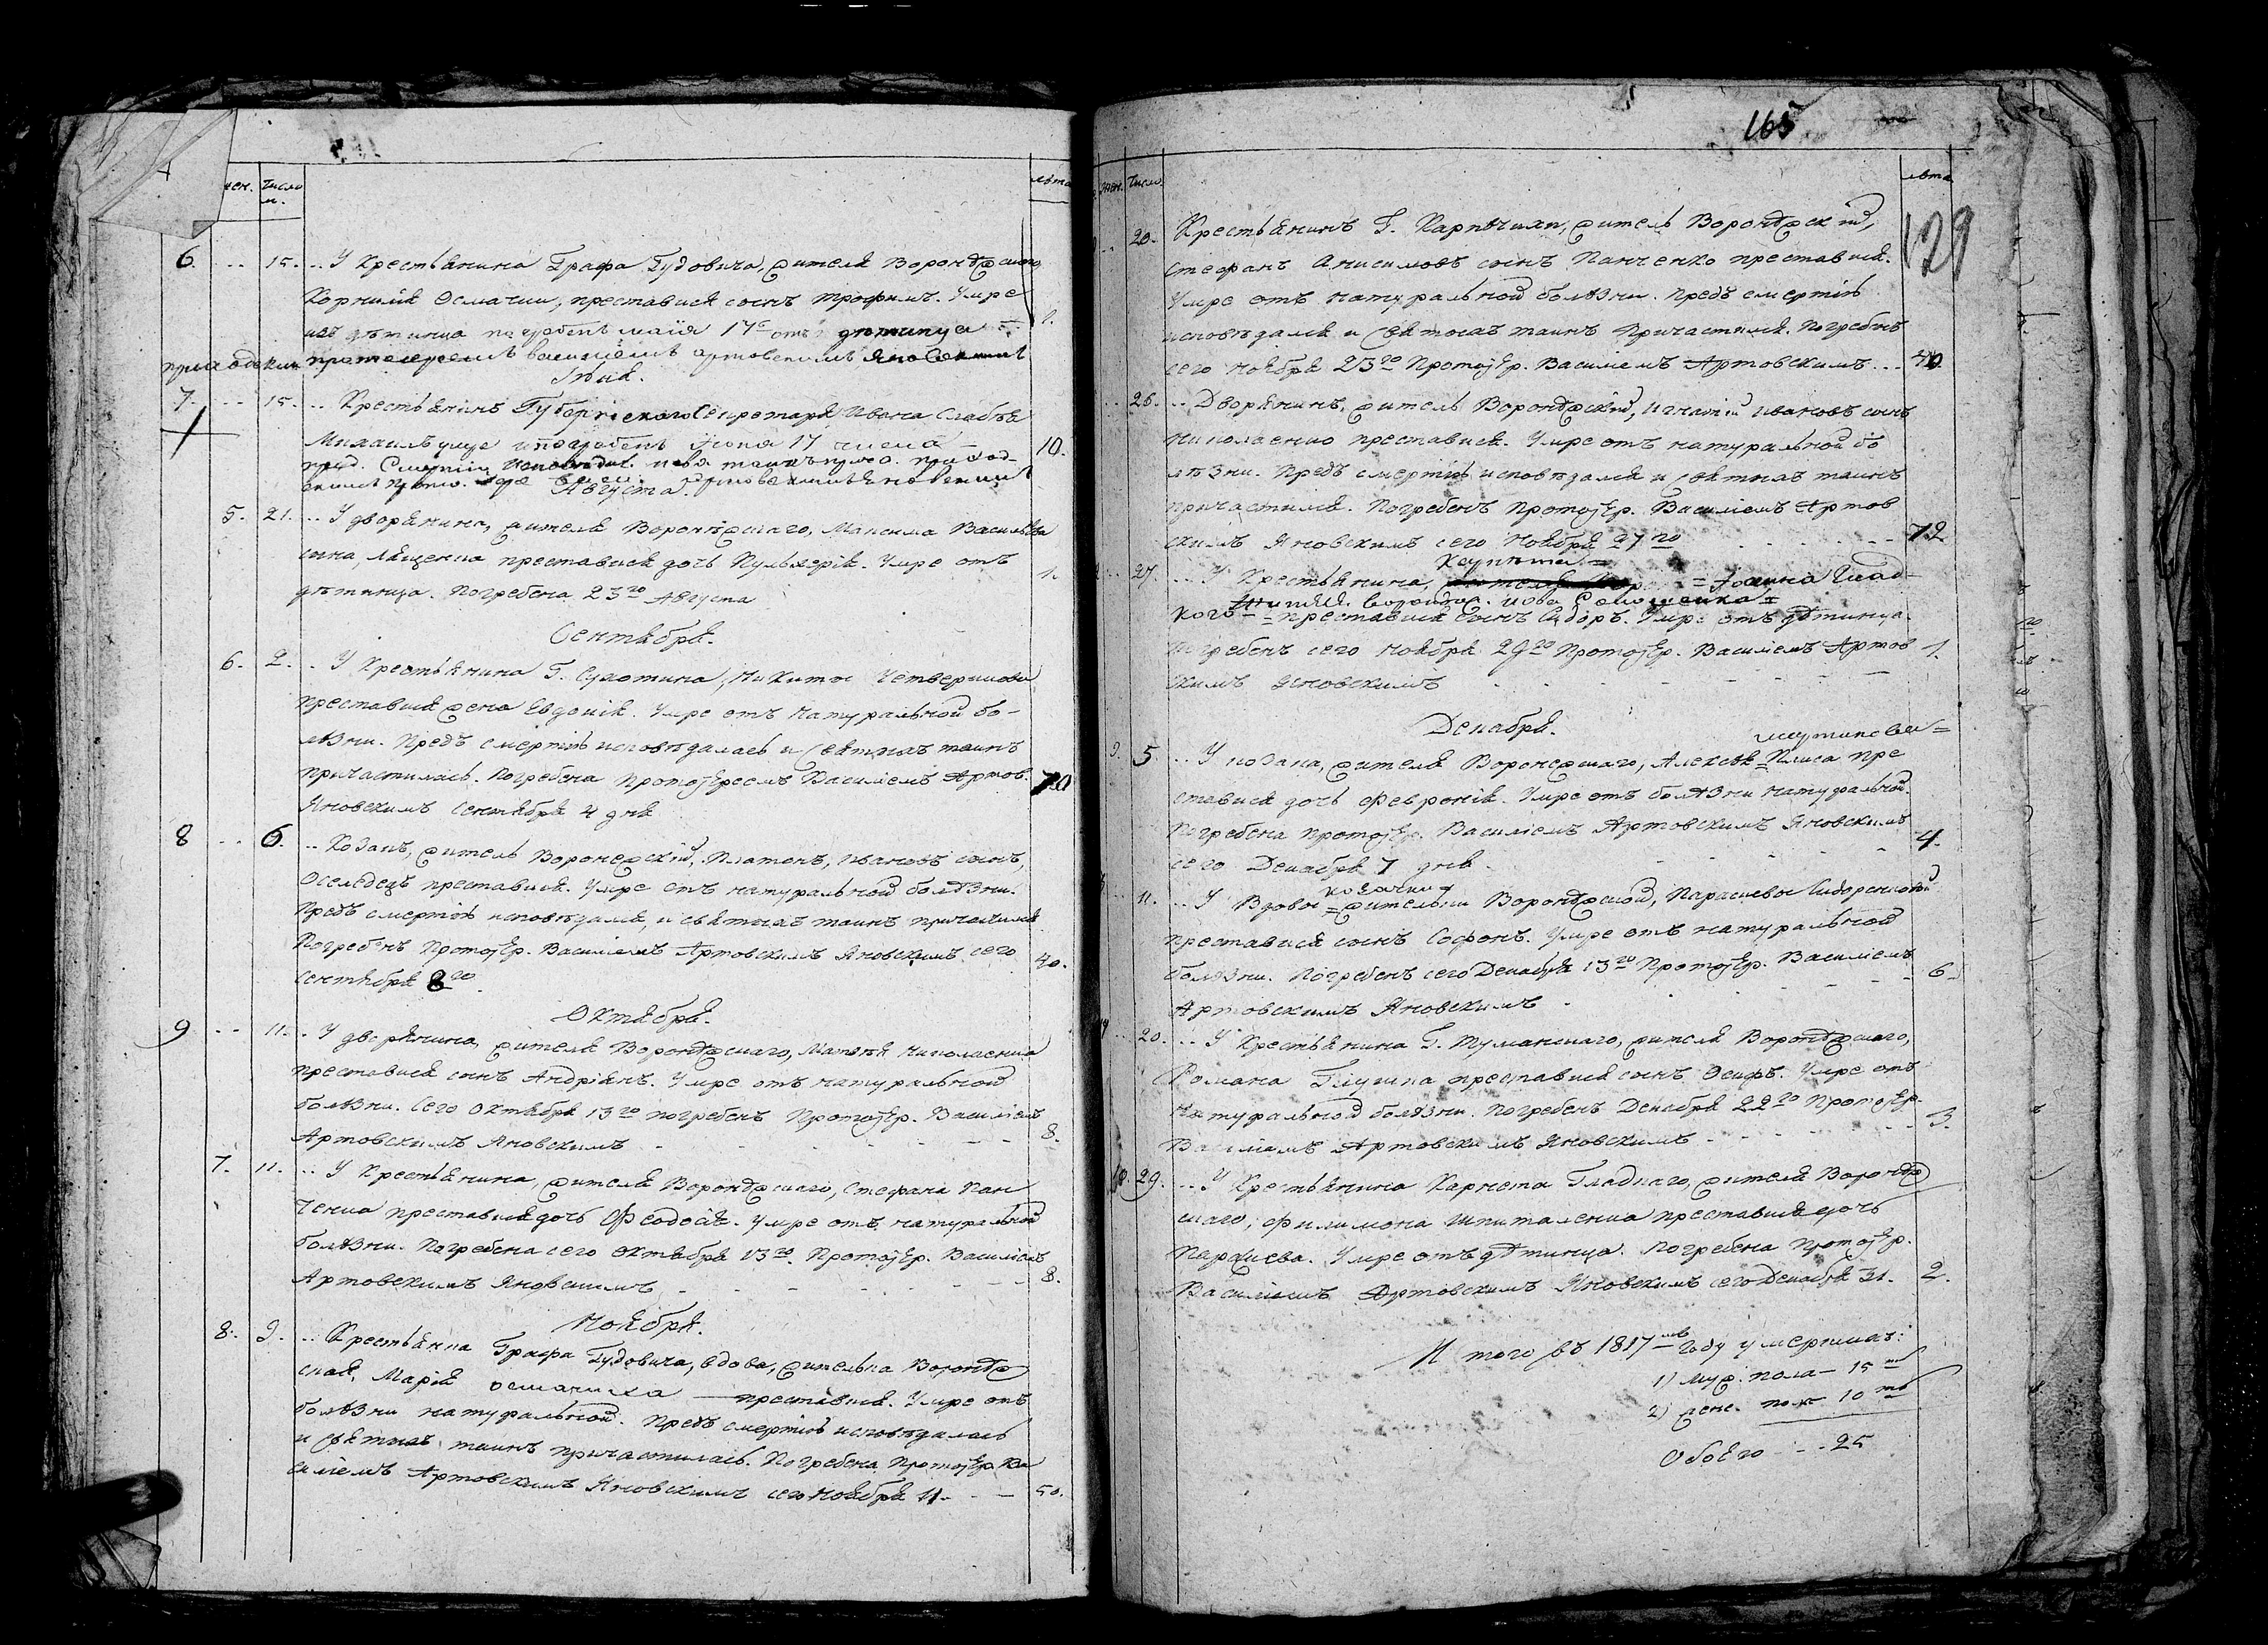 жен. Число м. лѣта
6. 15. У Крестьянина Графа Гудовича, жителя Воронѣжскаго,
Корнилія Осмачки, преставися сынъ Трофимъ. Умре
погребенъ маия 17 отъ дѣтинца 1.
протоіереемъ василіемъ артовскимъ яновскимъ
Іюня.
7. 15. Крестьянинъ Губернскаго Секретаря Ивана
Михаилъ умре и погребенъ іюня 17 числа 10.
Августа.
5. 21. У дворянина, жителя Воронѣжскаго, Максима Васильева
сына, Лященка преставися дочь Пульхерія. Умре отъ
дѣтинца. Погребена 23го Августа 1.
Сентября.
6. 2. У Крестьянина Г. Сухотина, Никиты Четверикова
преставися жена Евдокія. Умре отъ натуральной бо-
лѣзни. Предъ смертію исповѣдалась и Святыхъ таинъ
причастилась. Погребена Протоіереемъ Василіемъ Артов.
Яновскимъ Сентября 4 дня 70
8 6. Козакъ, житель Воронежскій, Платонъ, Ивановъ сынъ,
Оселедецъ преставися. Умре отъ натуральной болѣзни.
Предъ смертію исповѣдался, и святыхъ таинъ причастился
Погребенъ Протоіер. Василіемъ Артовскимъ Яновскимъ сего 40.
Сентября 8го
Октября.
9 11. У дворянина, жителя Воронѣжскаго, Матвѣя Николаенка
преставися сынъ Андріянъ. Умре отъ натуральной
болѣзни. Сего Октября 13го погребенъ Протоіер. Василіемъ
Артовскимъ Яновскимъ 8.
7. 11. У Крестьянина, жителя Воронѣжскаго, Стефана Пан
ченка преставися дочь Феодосія. Умре отъ натуральной
болѣзни. Погребена сего Октября 13го Протоіер. Василіемъ
Артовскимъ Яновскимъ 8.
Ноября.
8. 9. Крестьянка Графа Гудовича, вдова, жителька Воронѣж
ская, Марія осмачиха преставися. Умре отъ
болѣзни натуральной. Предъ смертію исповѣдалась
и Святыхъ таинъ причастилась. Погребена Протоіер. Ва
силіемъ Артовскимъ Яновскимъ сего Ноября 11. 50.
165
129
жен. Число лѣта
20. Крестьянинъ Г. Карпѣчихи, житель Воронѣжскій,
Стефанъ Анисимовъ сынъ Панченко преставися.
Умре отъ натуральной болѣзни. Предъ смертію
исповѣдался и Святыхъ таинъ Причастился. Погребенъ
сего Ноября 23го Протоіер. Василіемъ Артовскимъ
26. Дворянинъ, житель Воронѣжскій, Игнатій Ивановъ сынъ
Николаенко преставися. Умре отъ натуральной бо
лѣзни. Предъ смертію исповѣдался и Святыхъ таинъ
причастился. Погребенъ Протоіер. Василіемъ Артов
скимъ Яновскимъ сего Ноября 27го 72
27. У Крестьянина, Глад-
кого преставися сынъ Сидоръ. Умре отъ дѣтинца.
Погребенъ сего Ноября 29го Протоіер. Василіемъ Артов 1.
скимъ Яновскимъ
Декабря.
9. 5 У козака, жителя Воронежскаго, Алексѣя Плиса пре
ставися дочь Февронія. Умре отъ болѣзни натуральной.
Погребена Протоіер. Василіемъ Артовскимъ Яновскимъ 4.
сего Декабря 7 дня.
козачки
11. У Вдовы жительки Воронѣжской, Параскевы Сидоренковой
преставися сынъ Софонъ. Умре отъ натуральной
болѣзни. Погребенъ сего Декабря 13го Протоіер. Василіемъ 6.
Артовскимъ Яновскимъ
20. У Крестьянина Г. Туманскаго, жителя Воронѣжскаго,
Романа Глушка преставися сынъ Осифъ. Умре отъ
натуральной болѣзни. Погребенъ Декабря 22го Протоіер.
Василіемъ Артовскимъ Яновскимъ 3.
10. 29. У Крестьянина Карнета Гладкаго, жителя Воронѣж
скаго, Филимона Шпиталенка преставися дочь
Параскева. Умре отъ дѣтинца. Погребена Протоіер.
Василіемъ Артовскимъ Яновскимъ сего Декабря 31. 2.
И того въ 1817мъ году умершихъ:
1) муж. пола — 15
2) женс. пола 10
Обоего 25